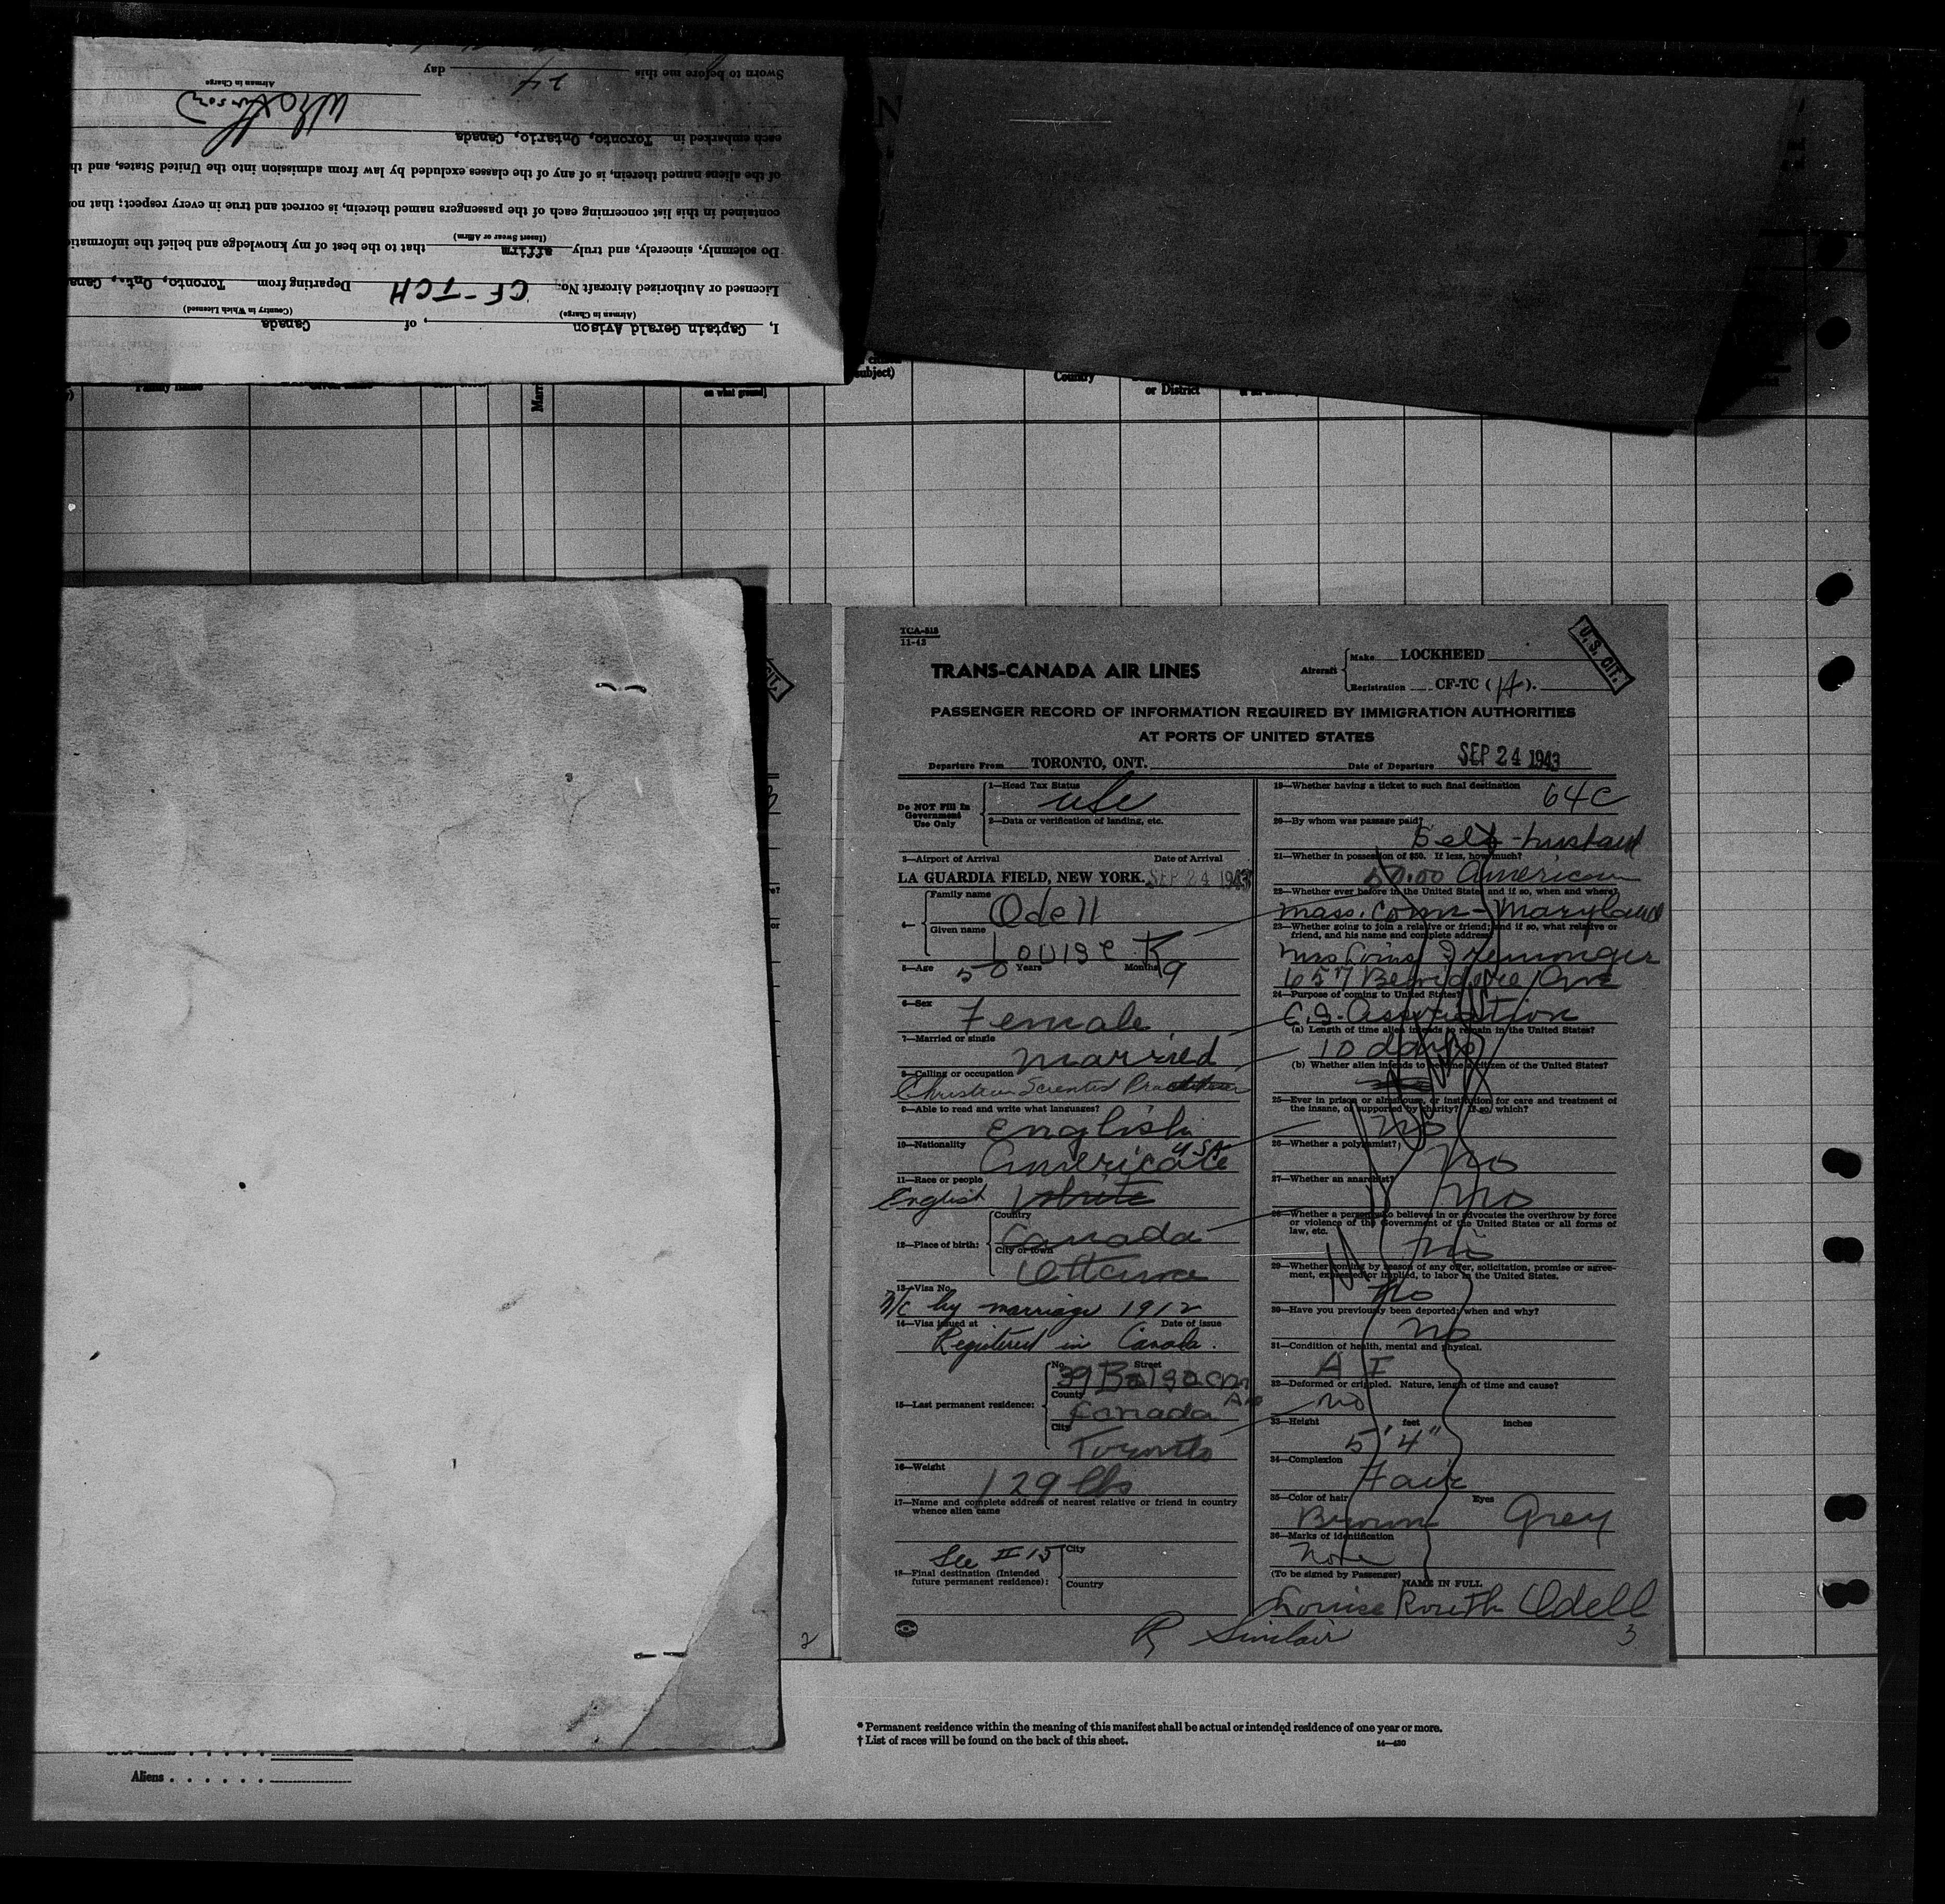 Sworn to before me this 24 day
Airman in Charge
each embarked in Toronto, Ontario, Canada
of the aliens named therein, is of any of the classes excluded by law from admission into the United States, and th
contained in this list concerning each of the passengers named therein, is correct and true in every respect; that no
Do solemnly, sincerely, and truly affirm that to the best of my knowledge and belief the informati
(Insert Swear or Affirm)
Licensed or Authorized Aircraft No. CF-TCH Departing from Toronto, Ont., Cana
(Airman in Charge) (Country in Which Licensed)
I, Captain Gerald Avison, of Canada
Family name Given name
on what ground]
subject)
Country
or District
TCA-515
11-42
U.S. CIT.
TRANS-CANADA AIR LINES
Aircraft Make LOCKHEED
Registration CF-TC (H).
PASSENGER RECORD OF INFORMATION REQUIRED BY IMMIGRATION AUTHORITIES
AT PORTS OF UNITED STATES
Departure From TORONTO, ONT. Date of Departure SEP 24 1943
Do NOT Fill In
Government
Use Only
1—Head Tax Status
2—Data or verification of landing, etc.
3—Airport of Arrival Date of Arrival
LA GUARDIA FIELD, NEW YORK. SEP 24 1943
4—
Family name
Odell
Given name
Louise R
5—Age 50 Years Months 9
6—Sex
Female
7—Married or single
married
8—Calling or occupation
Christian Scientist Practitioner
9—Able to read and write what languages?
English
10—Nationality
USA
11—Race or people
English White
12—Place of birth:
Country
Canada
City or town
Ottawa
13—Visa No.
by marriage 1912
14—Visa issued at Date of issue
Registered in Canada.
15—Last permanent residence:
No. Street
39 Balsam Ave
County
Canada
City
Toronto
16—Weight
129 lbs
17—Name and complete address of nearest relative or friend in country
whence alien came
See II 15
18—Final destination (Intended
future permanent residence):
City
Country
19—Whether having a ticket to such final destination
20—By whom was passage paid?
Self-husband
21—Whether in possession of $50. If less, how much?
50.00 American
22—Whether ever before in the United States and if so, when and where?
Mass. Conn-Maryland
23—Whether going to join a relative or friend; and if so, what relative or
friend, and his name and complete address
657 Belvidere Ave
24—Purpose of coming to United States?
C.S. Association
(a) Length of time alien intends to remain in the United States?
10 days
(b) Whether alien intends to become a citizen of the United States?
25—Ever in prison or almshouse, or institution for care and treatment of
the insane, or supported by charity? If so, which?
No
26—Whether a polygamist?
No
27—Whether an anarchist?
No
28—Whether a person who believes in or advocates the overthrow by force
or violence of the Government of the United States or all forms of
law, etc.
No
29—Whether coming by reason of any offer, solicitation, promise or agree-
ment, expressed or implied, to labor in the United States.
No
30—Have you previously been deported; when and why?
No
31—Condition of health, mental and physical.
A I
32—Deformed or crippled. Nature, length of time and cause?
No
33—Height feet inches
5' 4"
34—Complexion
Fair
35—Color of hair Eyes
Brown Grey
36—Marks of identification
None
(To be signed by Passenger)
NAME IN FULL
Louise Routh Odell
R Sinclair
3
2
* Permanent residence within the meaning of this manifest shall be actual or intended residence of one year or more.
† List of races will be found on the back of this sheet.
14—430
Aliens